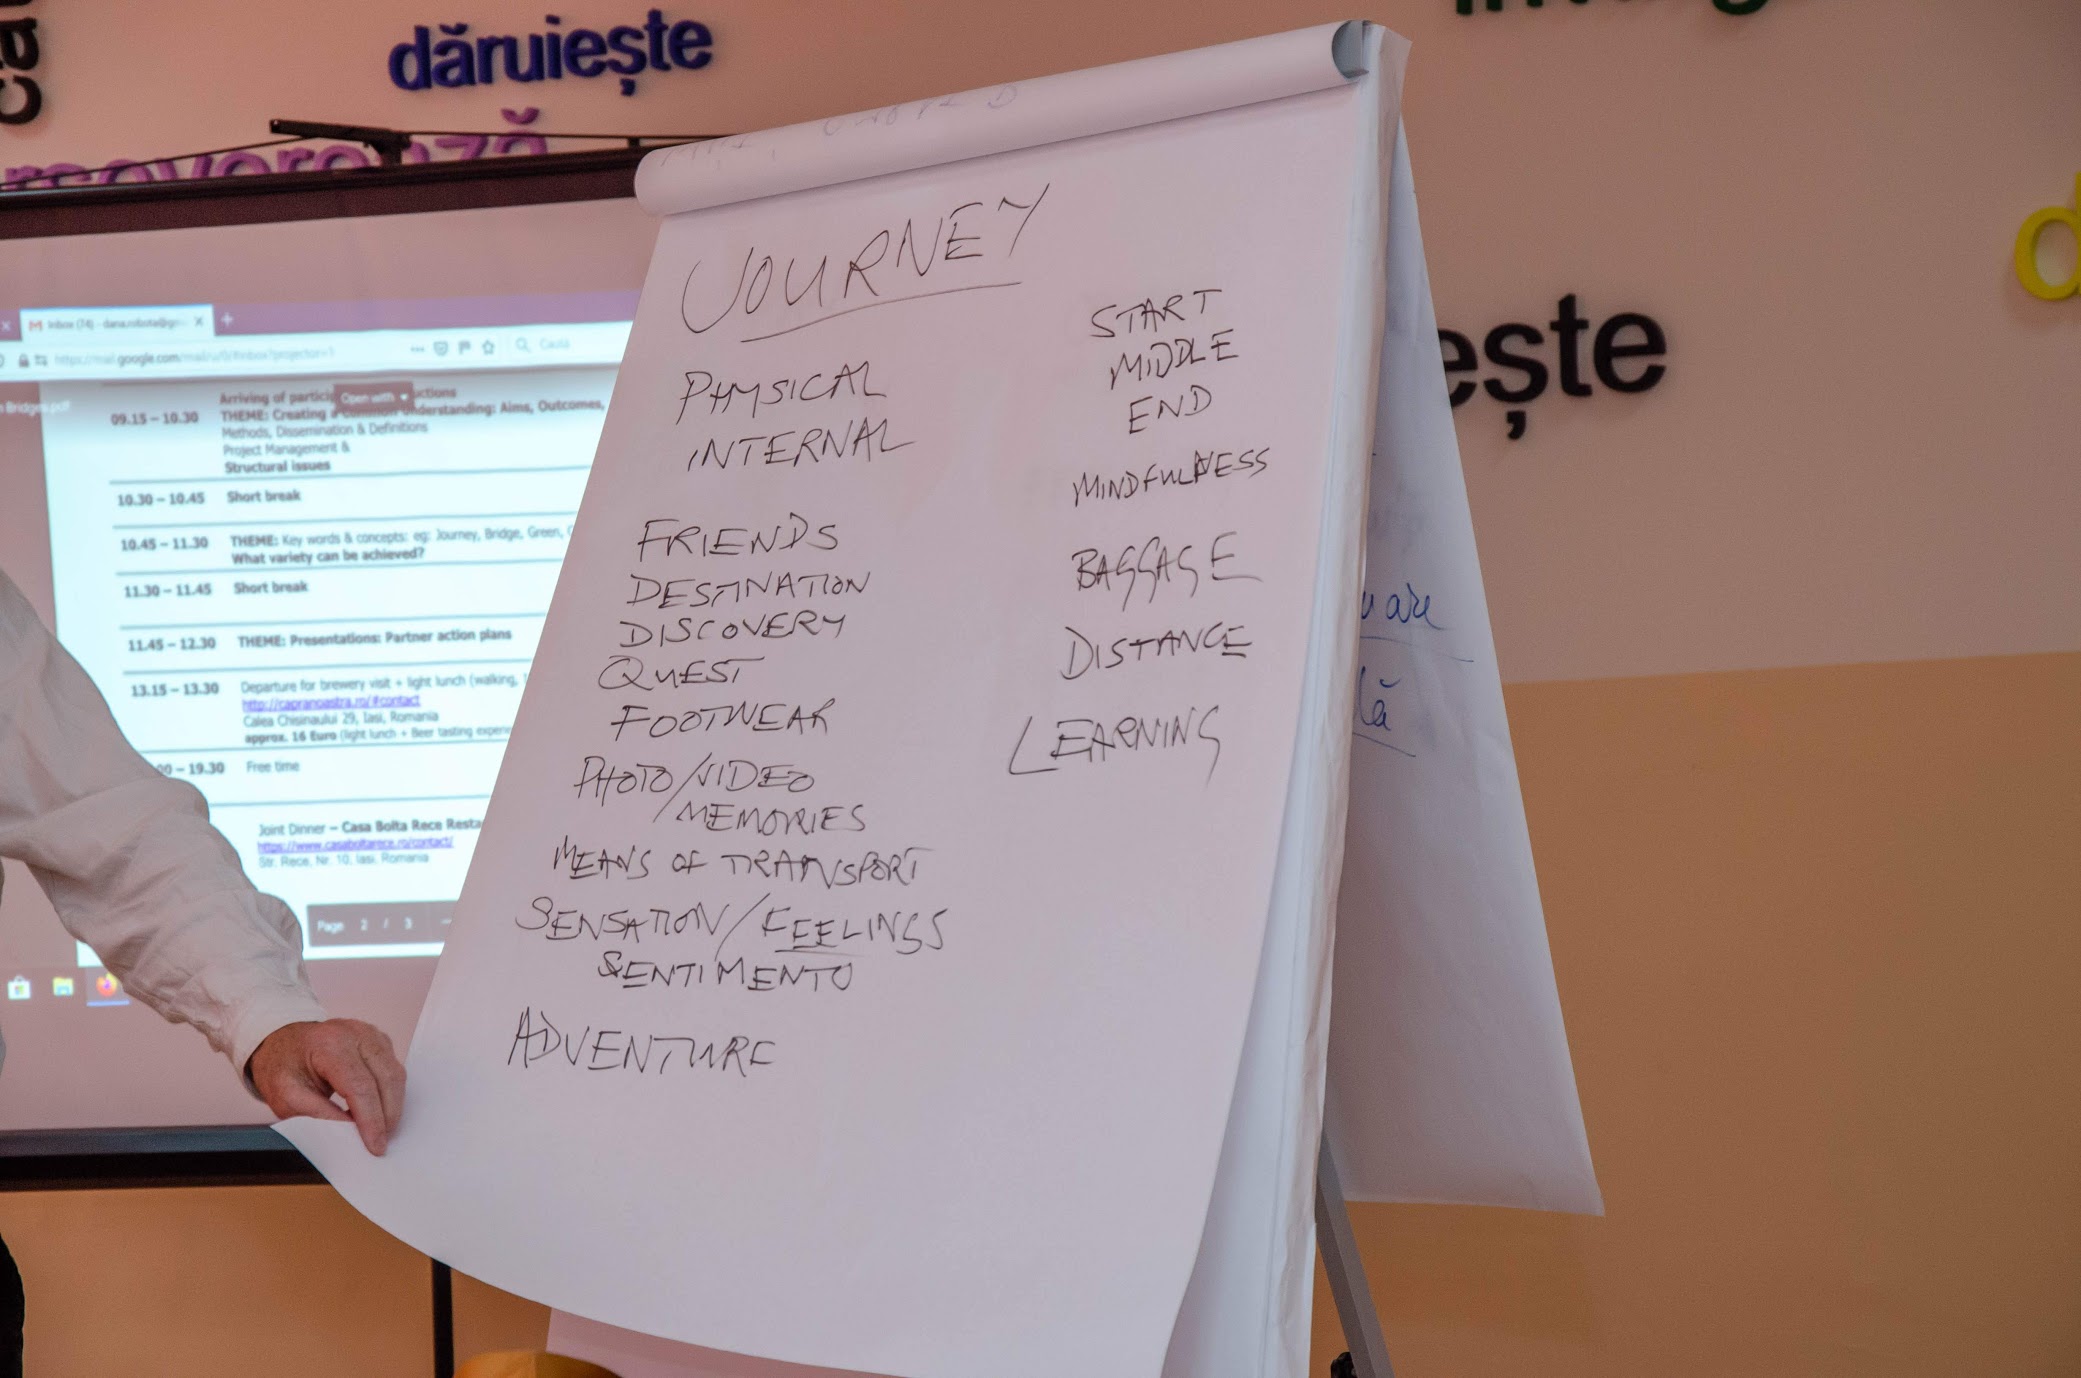 dăruiește
JOURNEY
PHYSICAL
INTERNAL
FRIENDS
DESTINATION
DISCOVERY
QUEST
FOOTWEAR
PHOTO/VIDEO
MEMORIES
MEANS OF TRANSPORT
SENSATION/FEELINGS
SENTIMENTO
ADVENTURE
START
MIDDLE
END
MINDFULNESS
BAGGAGE
DISTANCE
LEARNING
ește
Inbox (74) -
https://mail.google.com/mail/u/0/#inbox?projector=1
Caută
Bridges.pdf
Open with
Arriving of
09.15 – 10.30
THEME: Creating a understanding: Aims, Outcomes,
Methods, Dissemination & Definitions
Project Management &
Structural issues
10.30 – 10.45 Short break
10.45 – 11.30 THEME: Key words & concepts: eg: Journey, Bridge, Green,
What variety can be achieved?
11.30 – 11.45 Short break
11.45 – 12.30 THEME: Presentations: Partner action plans
13.15 – 13.30 Departure for brewery visit + light lunch (walking,
http://capranoastra.ro/#contact
Calea Chisinaului 29, Iasi, Romania
approx. 16 Euro (light lunch + Beer tasting
– 19.30 Free time
Joint Dinner – Casa Bolta Rece
https://www.casaboltarece.ro/contact/
Str. Rece, Nr. 10, Iasi, Romania
Page 2 / 3